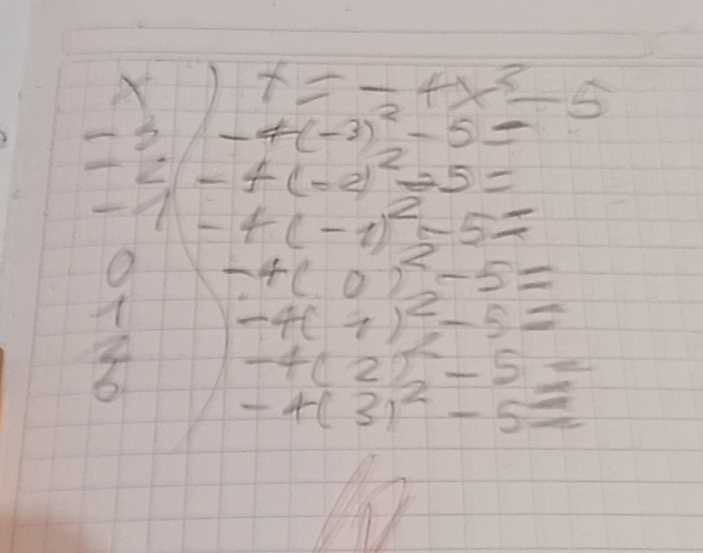 x y = -4x² - 5
-3 -4(-3)² - 5 =
-2 -4(-2)² - 5 =
-1 -4(-1)² - 5 =
0 -4( 0 )² - 5 =
1 -4( 1 )² - 5 =
2 -4( 2 )² - 5 =
3 -4( 3 )² - 5 =